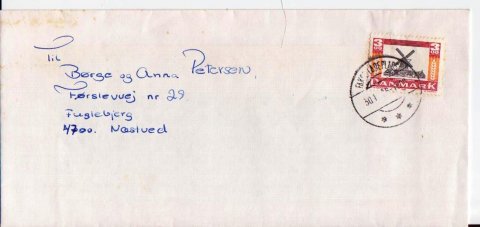 Til
Børge og Anna Petersen,
Førslevvej nr 29
Fuglebjerg
4700. Næstved
DANMARK